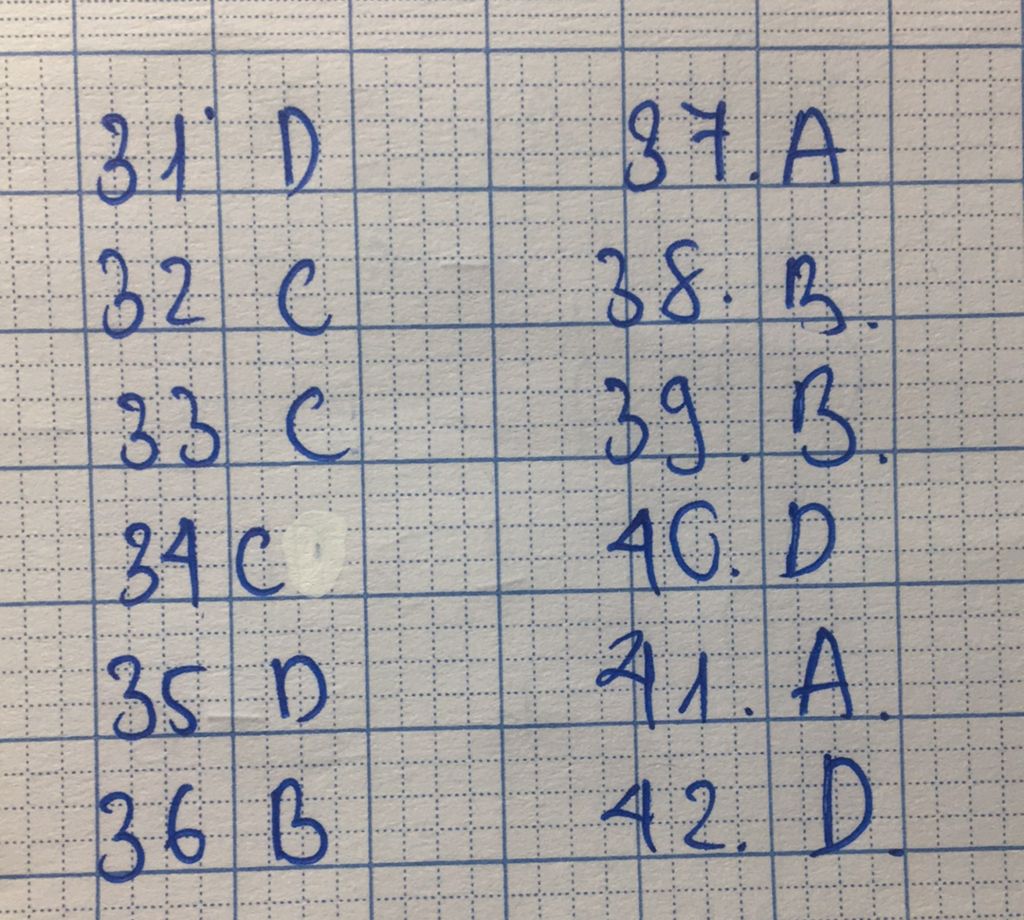 31. D
32 C
33 C
34 C
35 D
36 B
37. A
38. B.
39. B.
40. D
41. A.
42. D.